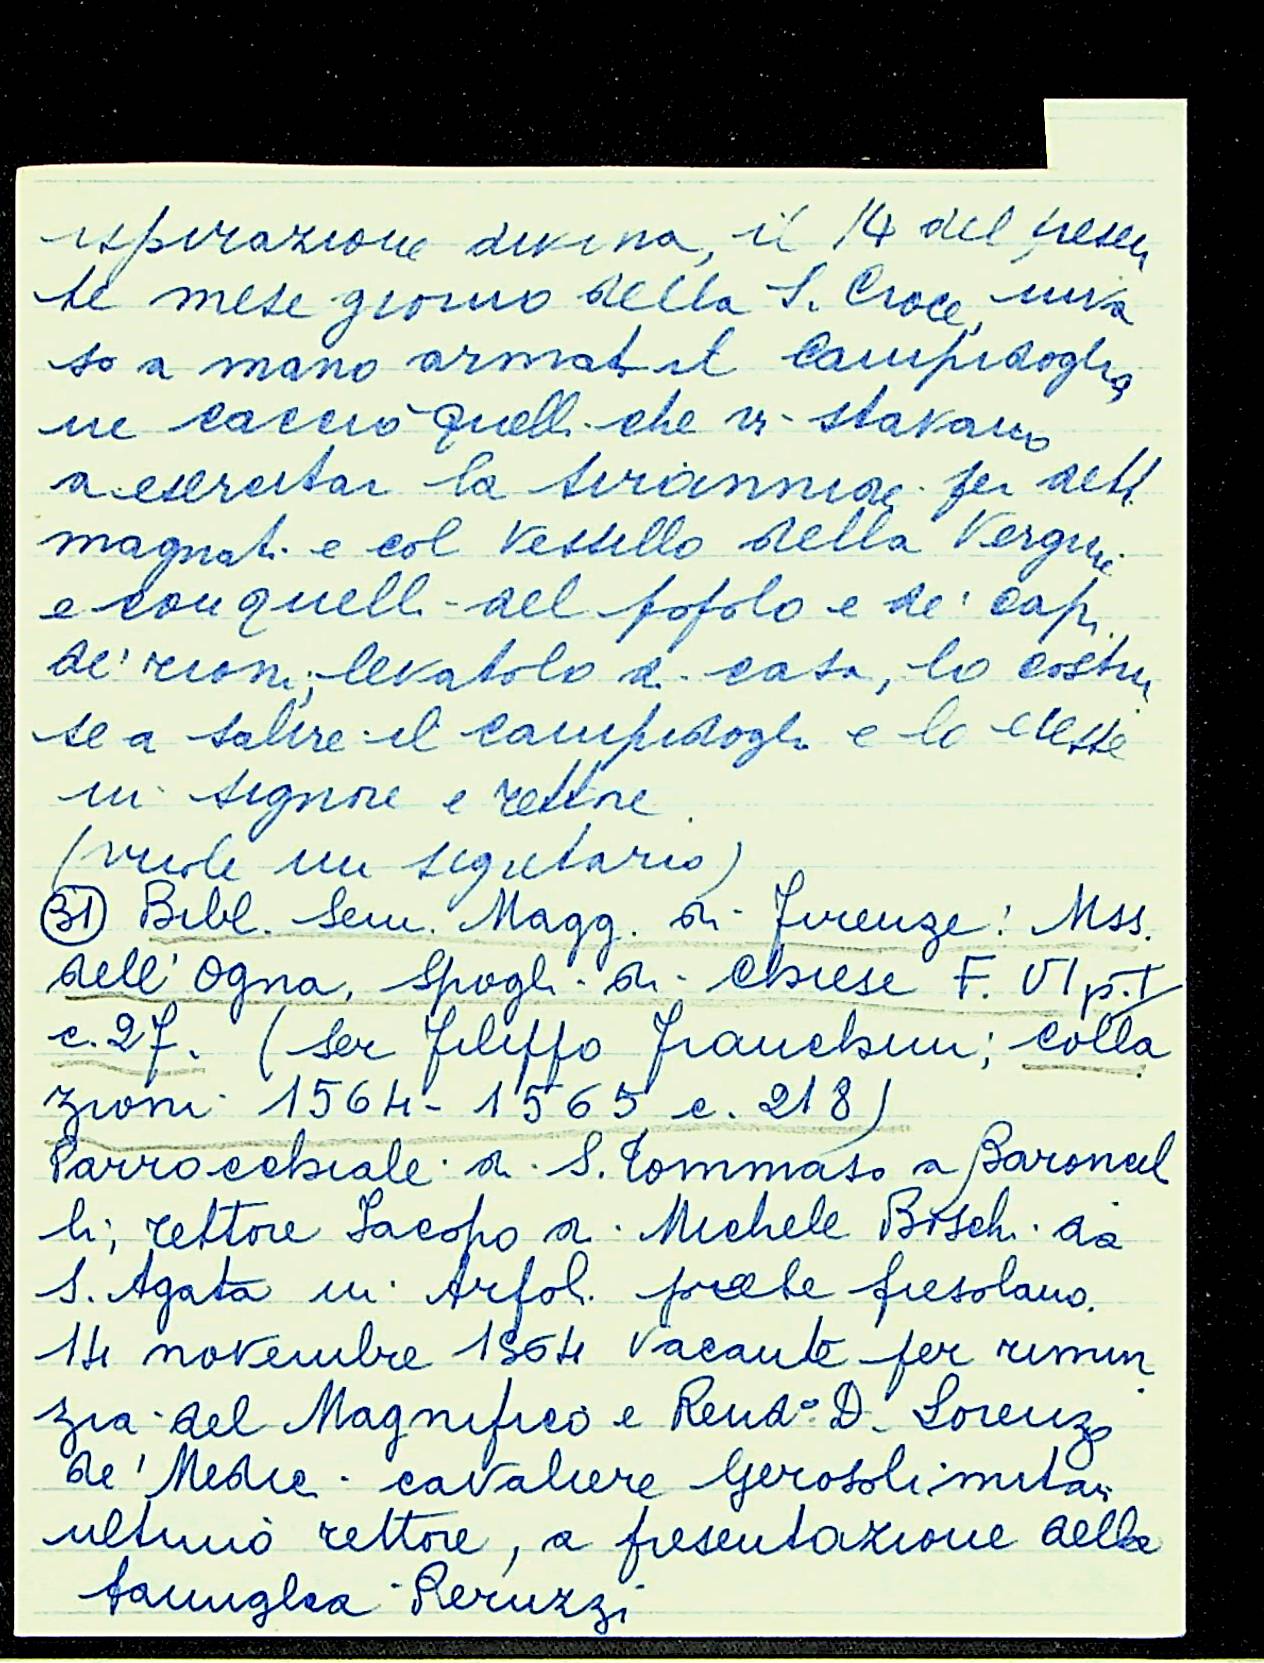 ispirazione divina, il 14 del presen
te mese giorno della S. Croce, inva
so a mano armata il Campidoglio,
ne cacciò quelli che vi stavano
a esercitar la tirannide per detti
magnati e col vessillo della Vergine
e con quelli del popolo e de' capi
de' rioni, levatolo di casa, lo costrin
se a salire il campidoglio e lo elesse
in signore e rettore.
(vuole un segretario)
31) Bibl. Sem. Magg. di Firenze: Mss.
dell'Ogna, Spogli di Chiese F. VI p. I
c. 27. (Ser Filippo Franchini; colla
zioni 1564-1565 c. 218)
Parrocchiale di S. Tommaso a Baroncel
li; rettore Jacopo di Michele Boschi da
S. Agata in Arfoli prete fiesolano.
14 novembre 1564 vacante per rinun
zia del Magnifico e Rend.º D. Lorenzo
de' Medici cavaliere Gerosolimitan
ultimo rettore, a presentazione della
famiglia Peruzzi